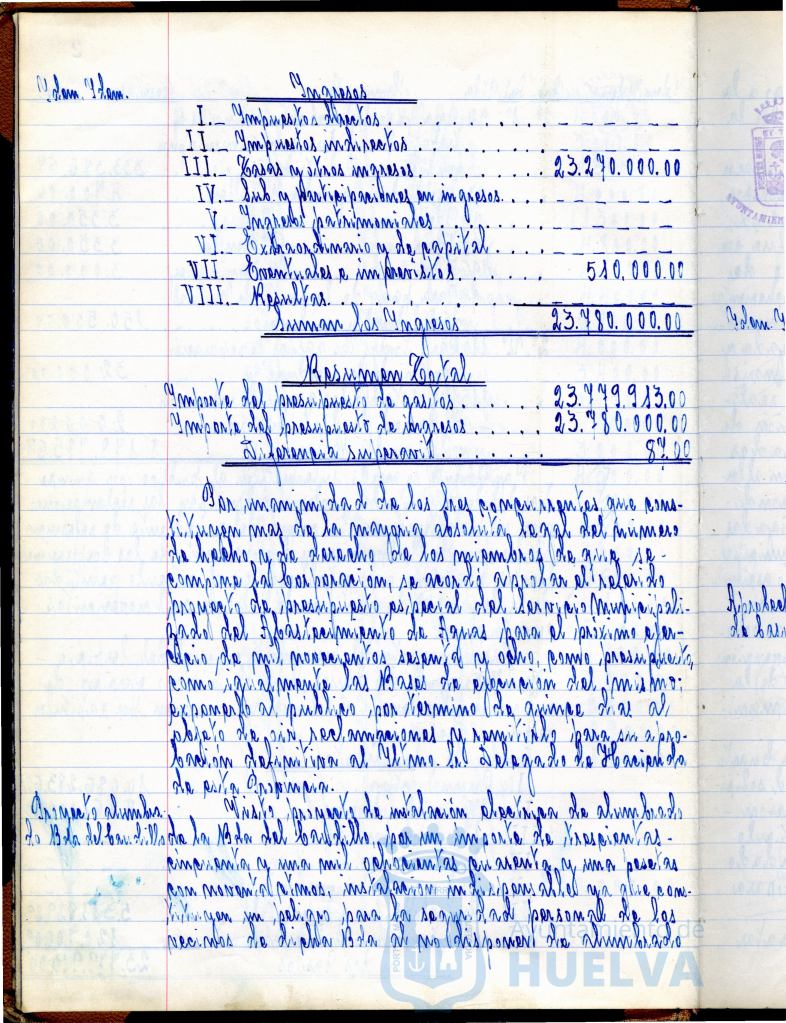 Idem. Idem.
Ingresos
I.- Impuestos directos . . . . . . . . . . . - - - - - - - - -
II.- Impuestos indirectos . . . . . . . . . - - - - - - - - -
III.- Tasas y otros ingresos . . . . . . . . . 23.270.000.00
IV.- Sub. y participaciones en ingresos . . . - - - - - - - - -
V.- Ingresos patrimoniales . . . . . . . . - - - - - - - - -
VI.- Extraordinario y de capital . . . . . - - - - - - - - -
VII.- Eventuales e imprevistos . . . . . . . 510.000.00
VIII.- Resultas . . . . . . . . . . . - - - - - - - - -
Suman los Ingresos 23.780.000.00
Resumen Total
Importe del presupuesto de gastos . . . . . . 23.779.913.00
Importe del presupuesto de ingresos . . . . . 23.780.000.00
Diferencia superavit . . . . . . . 87.00
Por unanimidad de los tres concurrentes, que cons-
tituyen mas de la mayoria absoluta legal del número
de hecho y de derecho de los miembros de que se
compone la Corporación, se acordó aprobar el referido
proyecto de presupuesto especial del Servicio Municipali-
zado del Abastecimiento de Aguas para el próximo ejer-
cicio de mil novecientos sesenta y ocho, como presupuesto,
como igualmente las Bases de ejecución del mismo;
exponerlo al público por termino de quince dias al
objeto de oir reclamaciones y remitirlo para su apro-
bación definitiva al Iltmo. Sr. Delegado de Hacienda
de esta Provincia.
Proyecto alumbra-
do Bda del Caudillo
Visto proyecto de intalación electrica de alumbrado
de la Bda del Caudillo, por un importe de trescientas
cincuenta y una mil ochocientas cuarenta y una pesetas
con noventa ctmos, instalacion indispensable ya que cons-
tituyen un peligro para la seguridad personal de los
vecinos de dicha Bda al no disponer de alumbrado
Ayuntamiento de
HUELVA